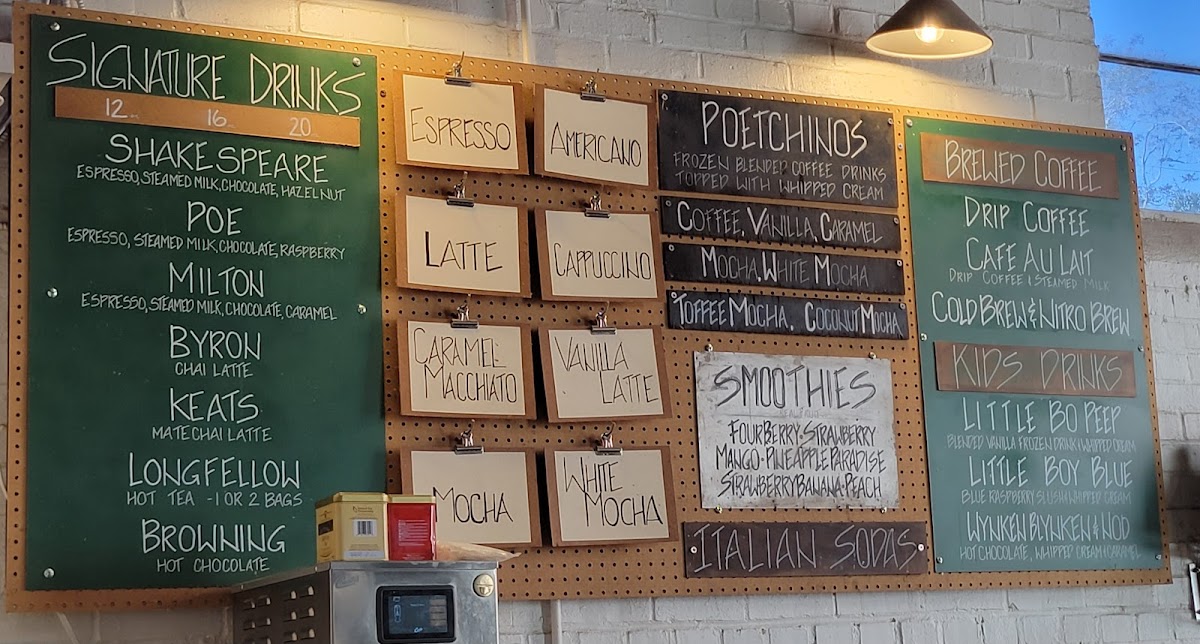 SIGNATURE DRINKS
12 16 20
SHAKESPEARE
ESPRESSO, STEAMED MILK, CHOCOLATE, HAZELNUT
POE
ESPRESSO, STEAMED MILK, CHOCOLATE, RASPBERRY
MILTON
ESPRESSO, STEAMED MILK, CHOCOLATE, CARAMEL
BYRON
CHAI LATTE
KEATS
MATE CHAI LATTE
LONGFELLOW
HOT TEA - 1 OR 2 BAGS
BROWNING
HOT CHOCOLATE
ESPRESSO
AMERICANO
LATTE
CAPPUCCINO
CARAMEL
MACCHIATO
VANILLA
LATTE
MOCHA
WHITE
MOCHA
POETCHINOS
FROZEN BLENDED COFFEE DRINKS
TOPPED WITH WHIPPED CREAM
COFFEE, VANILLA, CARAMEL
MOCHA, WHITE MOCHA
TOFFEE MOCHA, COCONUT MOCHA
SMOOTHIES
REAL FRUIT
FOUR BERRY-STRAWBERRY
MANGO-PINEAPPLE PARADISE
STRAWBERRY BANANA-PEACH
ITALIAN SODAS
BREWED COFFEE
DRIP COFFEE
CAFE AU LAIT
DRIP COFFEE & STEAMED MILK
COLD BREW & NITRO BREW
KIDS DRINKS
LITTLE BO PEEP
BLENDED VANILLA FROZEN DRINK & WHIPPED CREAM
LITTLE BOY BLUE
BLUE RASPBERRY SLUSH & WHIPPED CREAM
WYNKEN BLYNKEN & NOD
HOT CHOCOLATE, WHIPPED CREAM & CARAMEL